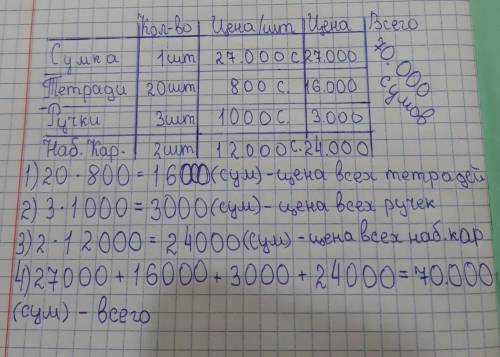 Кол-во Цена/шт Цена Всего
Сумка 1шт 27.000с. 27.000 70.000 сумов
Тетради 20шт 800с. 16.000
Ручки 3шт 1000с. 3.000
Наб.Кар. 2шт 12000с. 24.000
1) 20 · 800 = 16000(сум) - цена всех тетрадей
2) 3 · 1000 = 3000(сум) - цена всех ручек
3) 2 · 12000 = 24000(сум) - цена всех наб.кар
4) 27000 + 16000 + 3000 + 24000 = 70.000
(сум) - всего